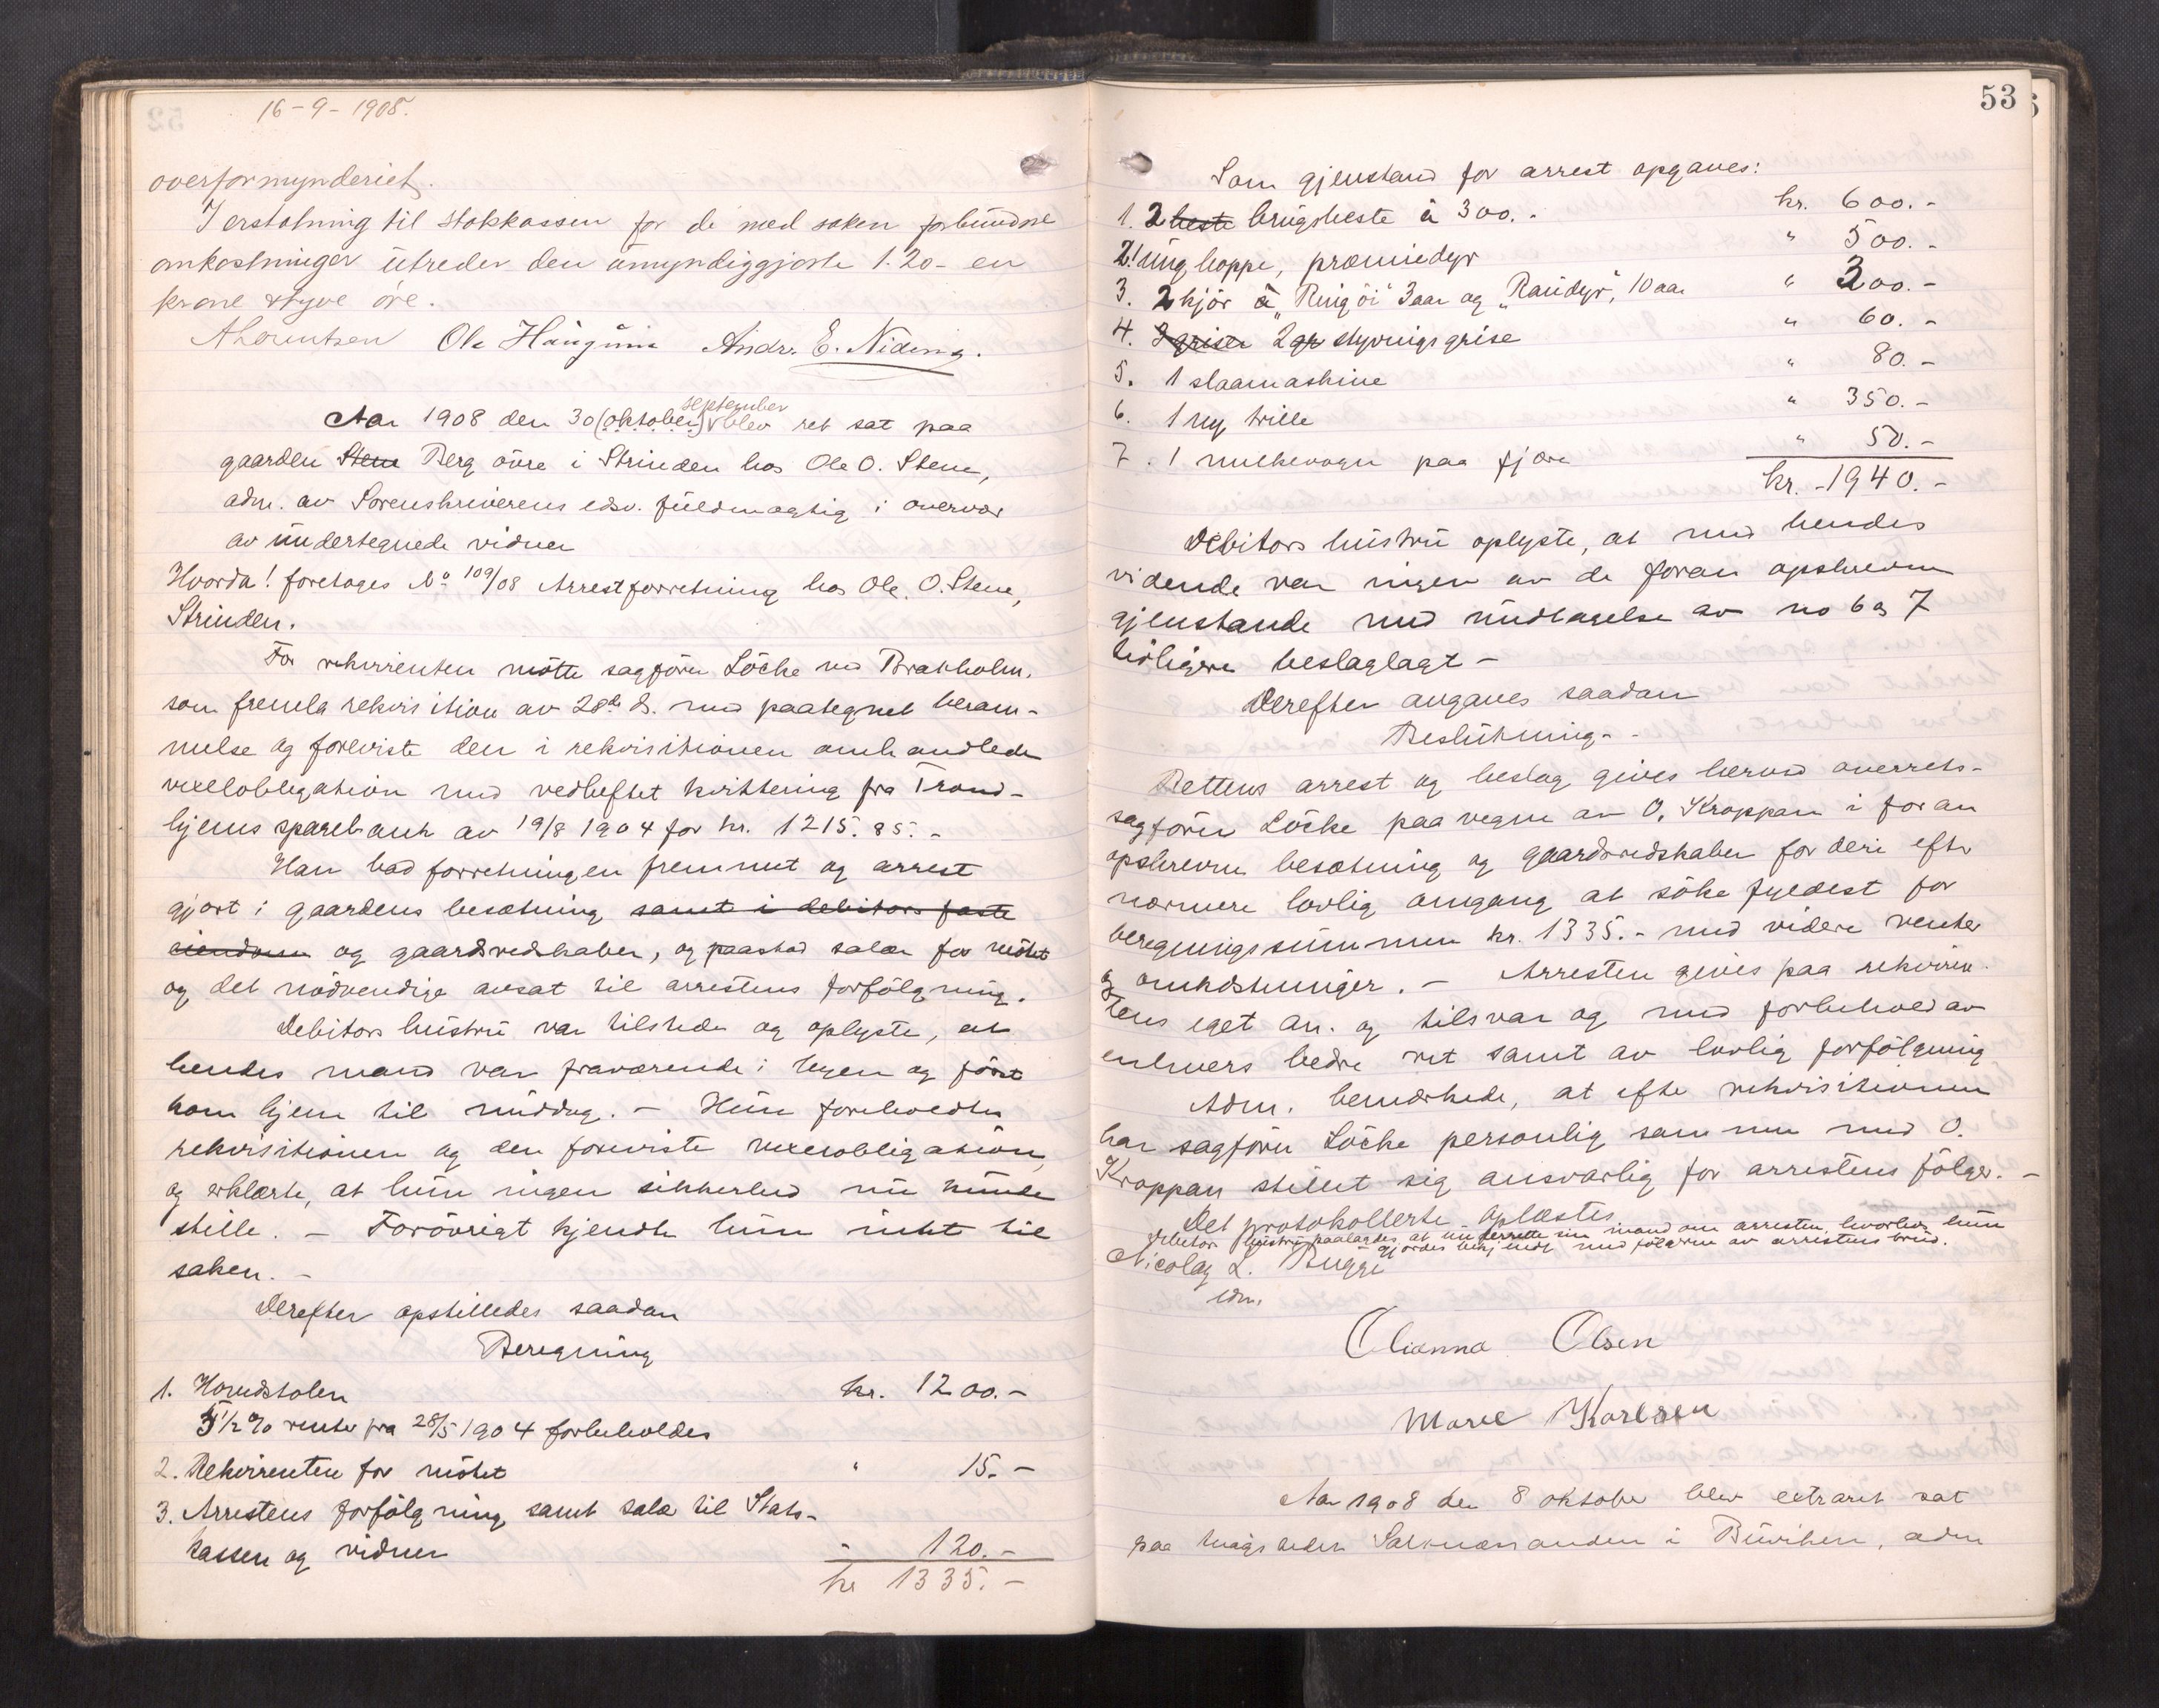 16-9-1908.
overformynderiet.
I erstatning til statskassen for de med saken forbundne
omkostninger utreder den umyndiggjorte 1.20 - en
krone & tyve øre.
ALorentsen Ole Haugum Andr. E. Nideng.
Aar 1908 den 30 (oktober) september blev ret sat paa
gaarden Stene Berg øvre i Strinden hos Ole O. Stene,
adm. av Sorenskriverens edsv. fuldmægtig i overvær
av undertegnede vidner
Hvorda! foretages No 109/08 Arrestforretning hos Ole O. Stene,
Strinden.
For rekvirenten møtte sagfører Löcke ved Brækholm.
som fremla rekvisition av 28de ds. med paategnet beram-
melse og foreviste den i rekvisitionen omhandlede
vexelobligation med vedheftet kvittering fra Trond-
hjems sparebank av 19/8 1904 for kr. 1215.85.-
Han bad forretningen fremmet og arrest
gjort i gaardens besætning samt i debitors faste
eiendom og gaardsredskaber, og paastod salær for møtet
og det nødvendige ansat til arrestens forfølgning.
Debitors hustru var tilstede og oplyste, at
hendes mand var fraværende i byen og først
kom hjem til middag. - Hun foreholdtes
rekvisitionen og den foreviste vexelobligation,
og erklærte, at hun ingen sikkerhed nu kunde
stille. - Forøvrigt kjendte hun intet til
saken. -
Derefter opstilledes saadan
Beregning
1. Hovedstolen kr. 1200.-
5 1/2 % rente fra 28/5 1904 forbeholdes
2. Rekvirenten for møtet " 15.-
3. Arrestens forfølgning samt salær til Stats-
kassen og vidner - 120.-
kr 1335.-
53
Som gjenstand for arrest opgaves:
1. 2 heste brugsheste à 300.- kr. 600.-
2. 1 ung hoppe, præmiedyr " 500.-
3. 2 kjør à "Ringøi" 3 aar og "Raudyr", 10 aar " 300.-
4. 2 grise 2 gr styvnigsgrise " 60.-
5. 1 slaamaskine " 80.-
6. 1 ny trille " 350.-
7. 1 melkevogn paa fjære " 50.-
kr. -1940.-
Debitors hustru oplyste, at med hendes
vidende var ingen av de foran opskrevne
gjenstande med undtagelse av no 6 og 7
tidligere beslaglagt -
Derefter avgaves saadan
Beslutning. -
Rettens arrest og beslag gives herved overrets-
sagfører Löcke paa vegne av O. Kroppan i foran
opskrevne besætning og gaardsredskaber for deri efter
nærmere lovlig omgang at søke fyldest for
beregningssummen kr. 1335.- med videre renter
og omkostninger. - Arresten gives paa rekviren-
tens eget an. og tilsvar og med forbehold av
enhvers bedre ret samt av lovlig forfølgning
Adm. bemærkede, at efter rekvisitionen
har sagfører Löcke personlig sammen med O.
Kroppan stillet sig ansvarlig for arrestens følger. -
Det protokollerte oplæstes
debitors hustru paalagdes at underrette sin mand om arresten, hvorhos hun
gjordes bekjendt med følgerne av arrestens brud.
Nicolay L. Bugge
edsv.
Olianna Olsen
Marie Karlsen
Aar 1908 den 8 oktober blev extraret sat
paa tingstedet Saltnessanden i Buviken, adm